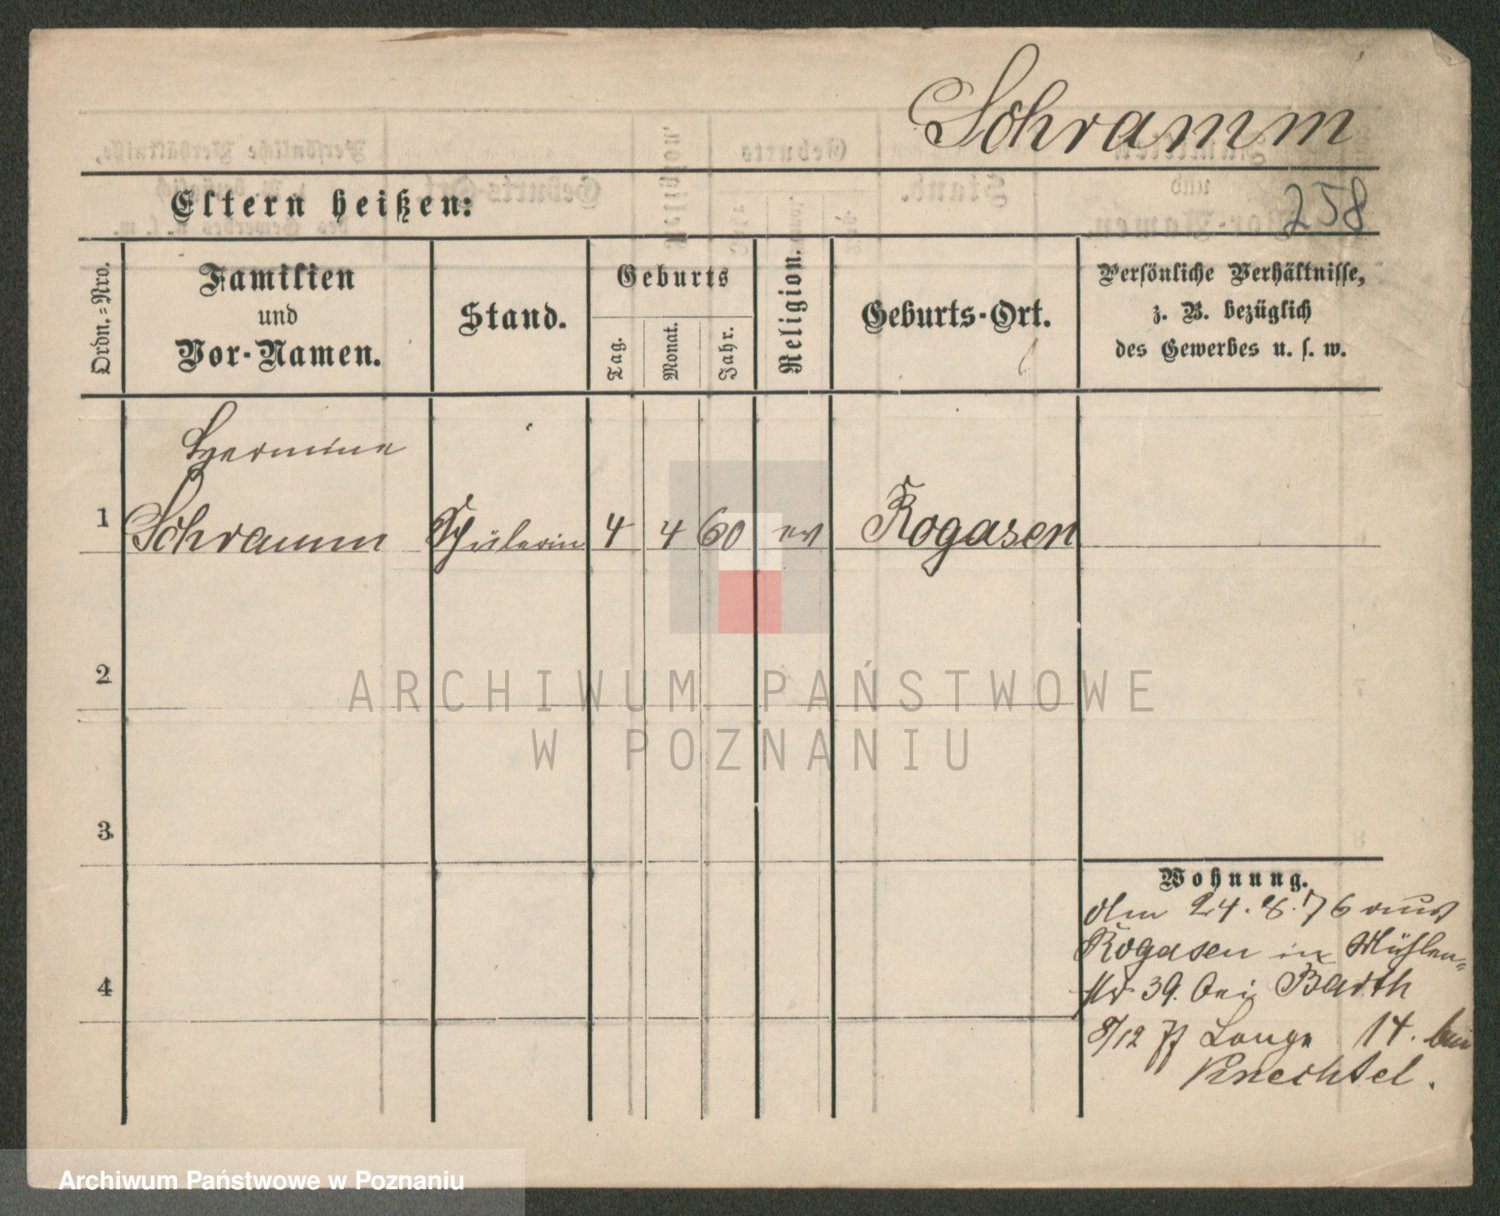 Schramm
Eltern heißen:
258
Ordn.-Nro.
Familien
und
Vor-Namen.
Stand.
Geburts
Tag.
Monat.
Jahr.
Religion.
Geburts-Ort.
Persönliche Verhältnisse,
z. B. bezüglich
des Gewerbes u. s. w.
Hermine
1 Schramm Schülerin 4 4 60 ev Rogasen
2
3
4
Wohnung.
Am 24. 8. 76 aus
Rogasen in Mühlen-
str 39. bei Barth
8/12 77 Lange 14. bei
Knechtel.
ARCHIWUM PAŃSTWOWE
W POZNANIU
Archiwum Państwowe w Poznaniu